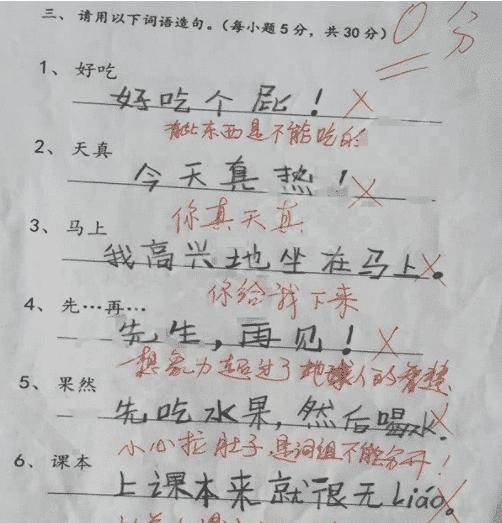 三、请用以下词语造句。(每小题5分，共30分)
0分
1、好吃
好吃个屁！
有些东西是不能吃的
2、天真
今天真热！
你真天真
3、马上
我高兴地坐在马上。
你给我下来
4、先…再…
先生，再见！
想象力超过了地球人的智慧
5、果然
先吃水果，然后喝水.
小心拉肚子，是词组不能分开！
6、课本
上课本来就很无Liáo。